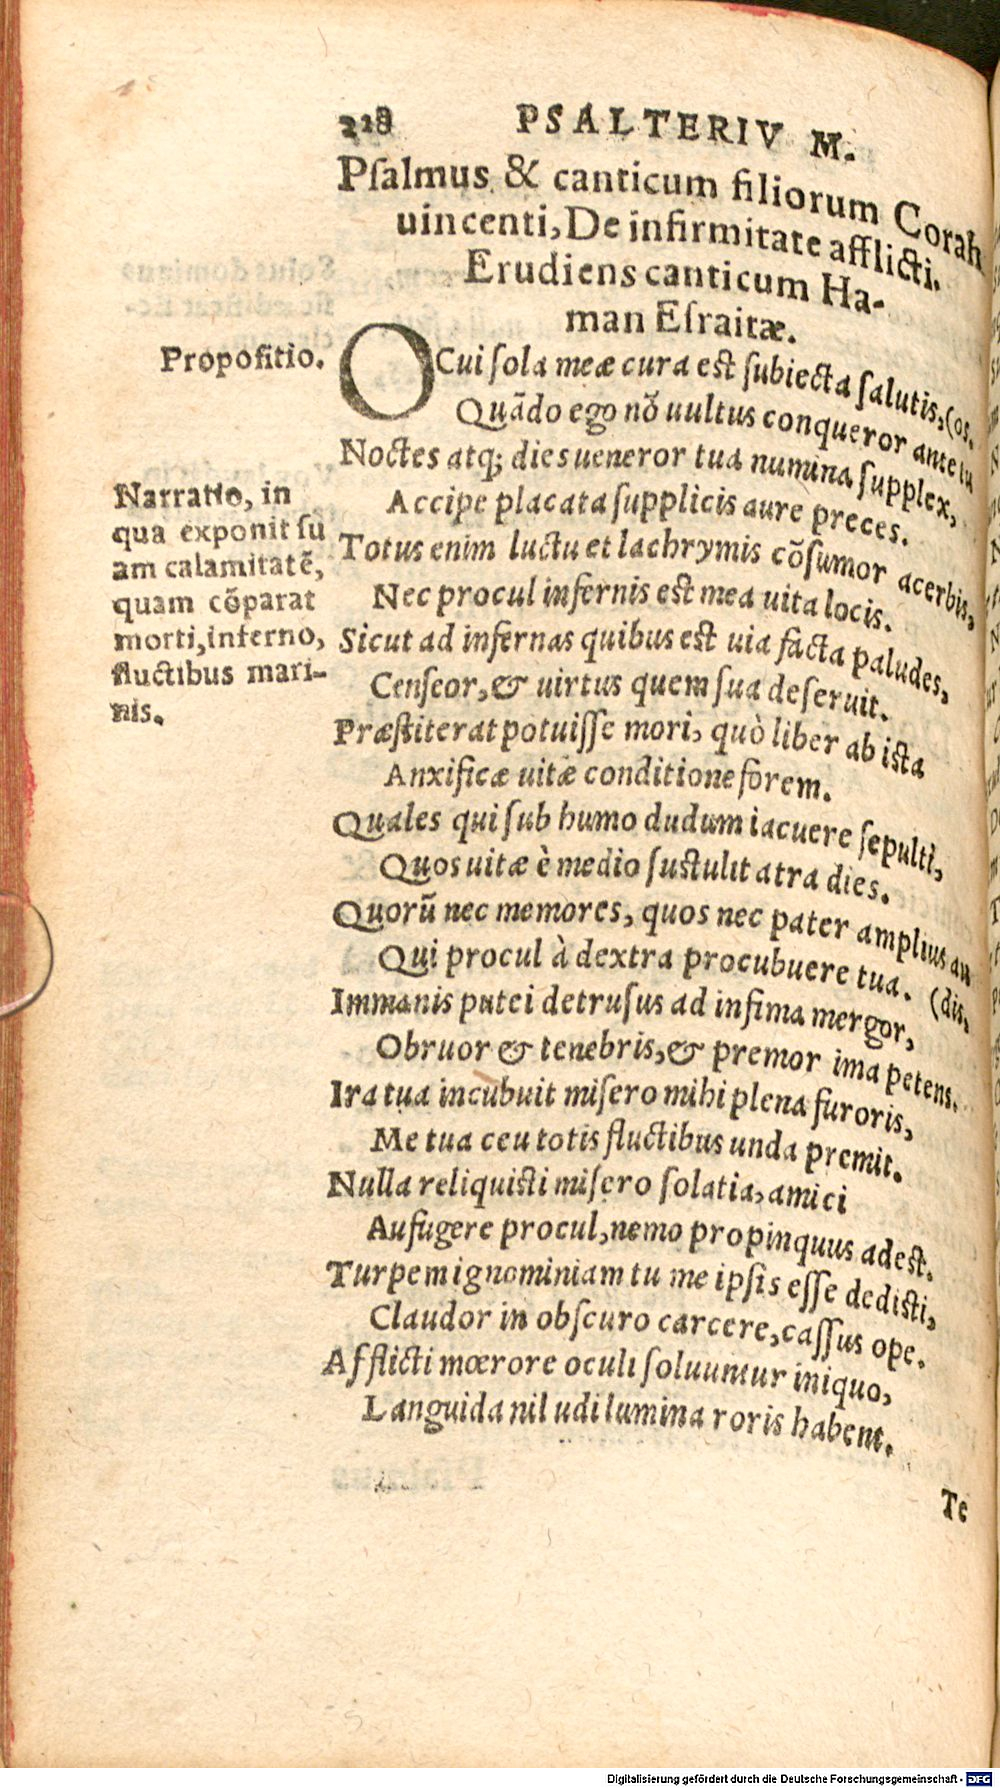 218 PSALTERIVM.
Pſalmus & canticum filiorum Corah
uincenti, De infirmitate afflicti.
Erudiens canticum Ha-
man Eſraitæ.
Propoſitio.
O Cui ſola meæ cura est ſubiecta ſalutis, (os.
Quãdo ego nõ uultus conqueror ante tu
Noctes atq; dies ueneror tua numina ſupplex,
Accipe placata ſupplicis aure preces.
Narratio, in
qua exponit ſu
am calamitatẽ,
quam cõparat
morti, inferno,
fluctibus mari-
nis.
Totus enim luctu et lachrymis cõſumor acerbis,
Nec procul infernis est mea uita locis.
Sicut ad infernas quibus est uia facta paludes,
Cenſeor, & uirtus quem ſua deſeruit.
Præſtiterat potuiſſe mori, quò liber ab iſta
Anxificæ uitæ conditione forem.
Quales qui ſub humo dudum iacuere ſepulti,
Quos uitæ è medio ſustulit atra dies.
Quorũ nec memores, quos nec pater amplius au
Qui procul à dextra procubuere tua. (dis,
Immanis putei detruſus ad infima mergor,
Obruor & tenebris, & premor ima petens.
Ira tua incubuit miſero mihi plena furoris,
Me tua ceu totis fluctibus unda premit.
Nulla reliquiſti miſero ſolatia, amici
Aufugere procul, nemo propinquus adeſt.
Turpem ignominiam tu me ipſis eſſe dediſti,
Claudor in obſcuro carcere, caſſus ope.
Afflicti mœrore oculi ſoluuntur iniquo,
Languida nil udi lumina roris habent.
Te
Digitalisierung gefördert durch die Deutsche Forschungsgemeinschaft - DFG